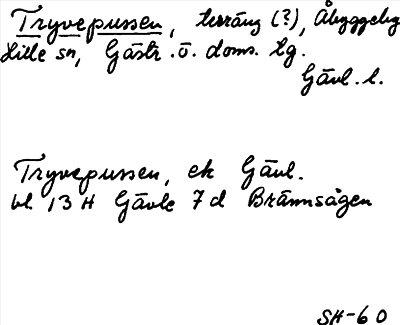 Tryvepussen, terräng (?), Åbyggeby
Hille sn, Gästr. ö. doms. tg.
Gävl. l.
Tryvepussen, ek Gävl.
bl. 13 H Gävle 7 d Brännsågen
SH-60